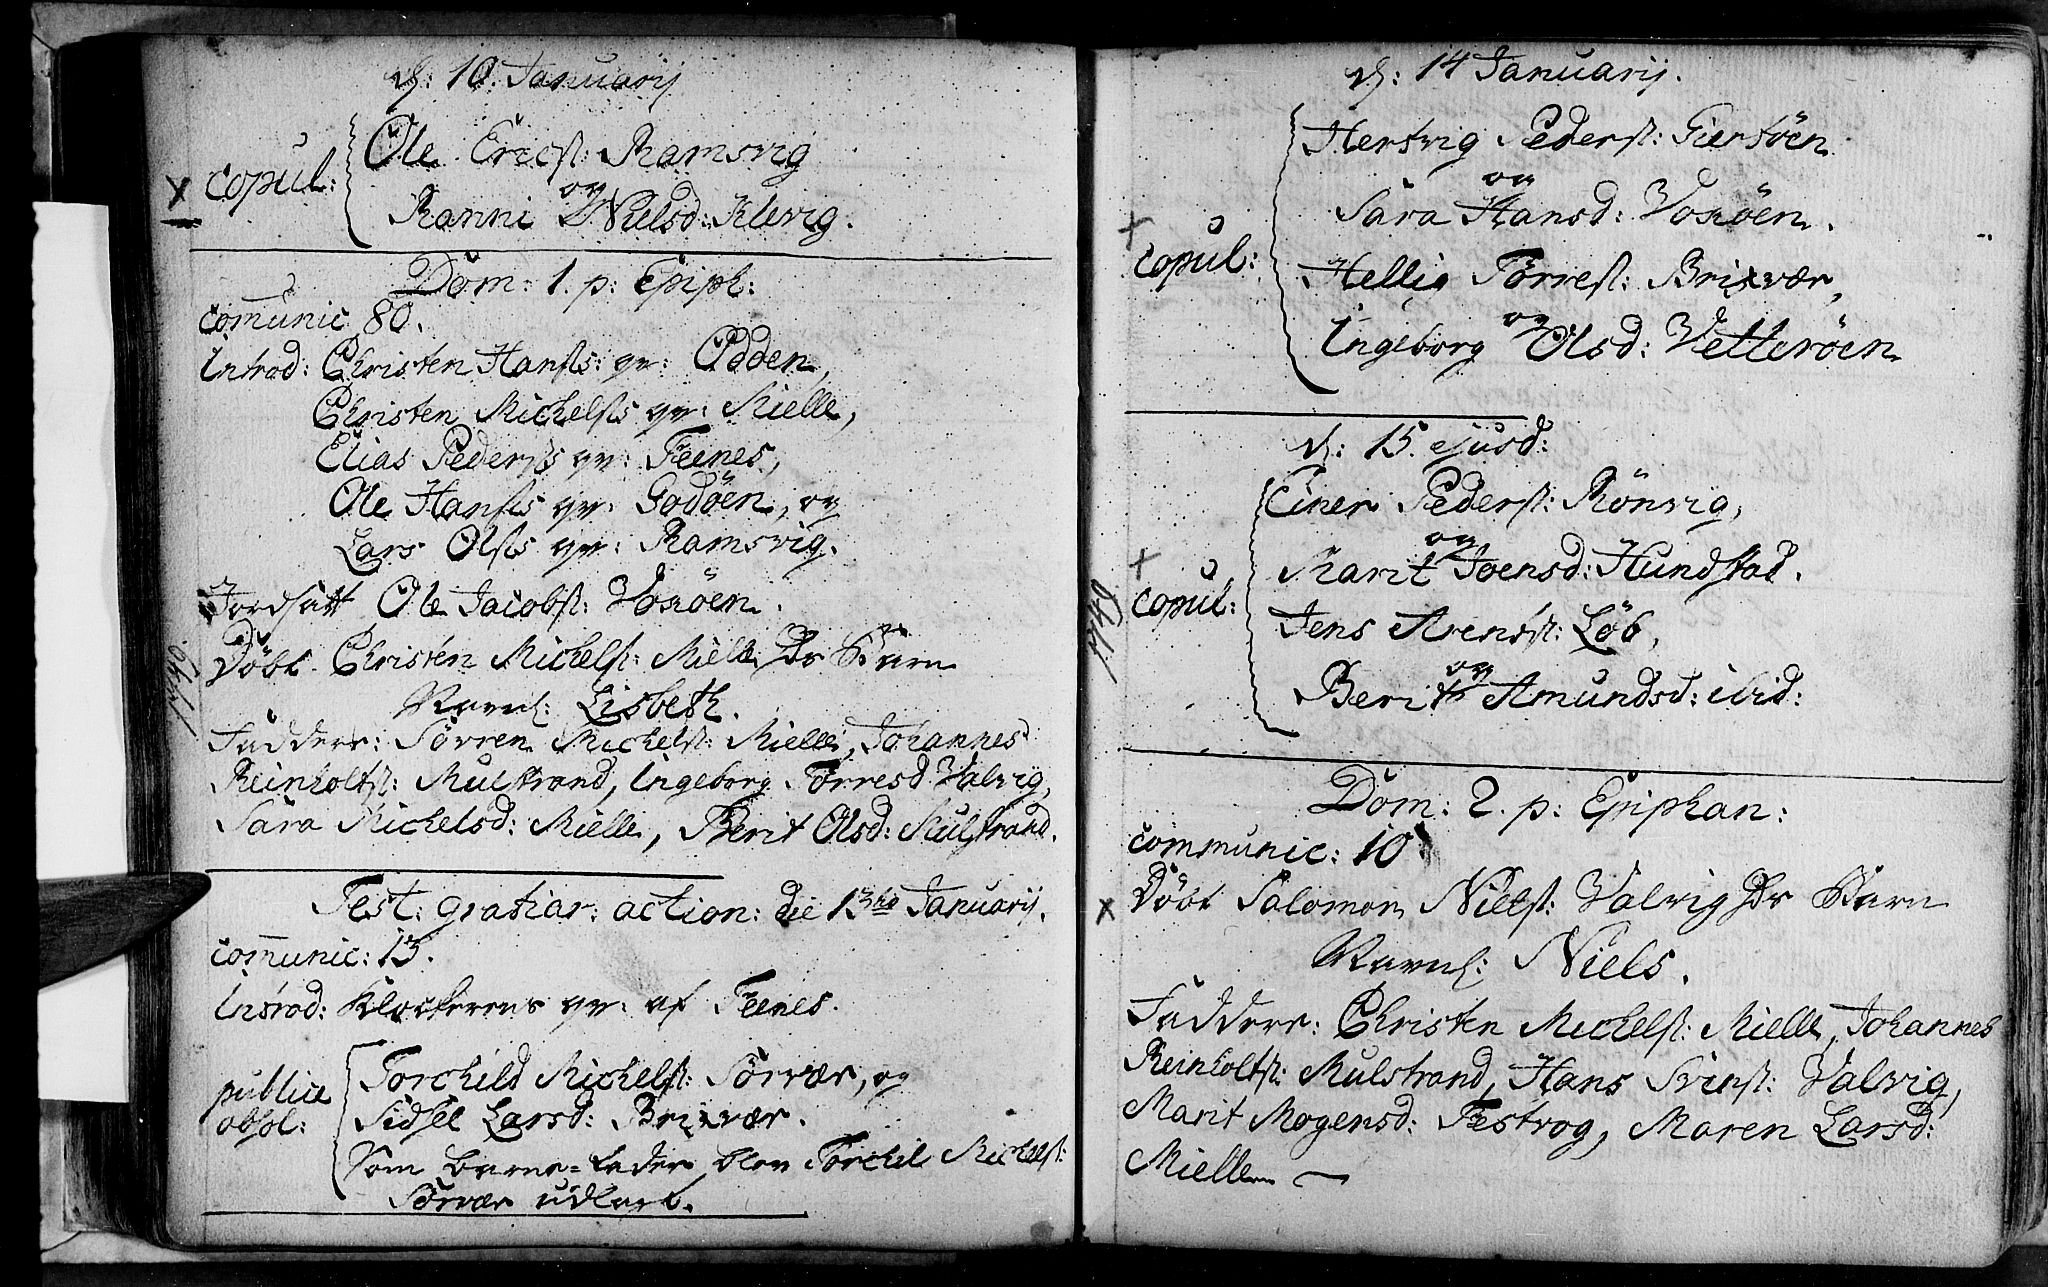 d: 10 Januarij
Ole Ericss: Ramsvig
X copul: og
Ranni Nielsd: Klevig.
Dom: 1. p: Epiph:
com̄unic 80.
introd: Christen Hanss: qv: Odden,
Christen Michelss qv: Mielle,
Elias Pederss qv: Feenes,
Ole Hanss qv: Godöen, og
Lars Olss qv: Ramsvig.
Jordsatt Ole Jacobss: Voxöen.
Döbt Christen Michelss: Mielle Ds Barn
Navnl: Lisbeth.
Faddere: Sörren Michelss: Mielle, Johannes
Reinholtss: Mulstrand, Ingeborg Torresd Valvig,
Sara Michelsd: Mielle, Berit Olsd: Mulstrand.
1749.
Fest: gratiar: action: die 13tio Januarij.
com̄unic: 15.
introd: Klockerens qv: af Feenes.
Torchild Michelss: Sörvær, og
publice Sidsel Larsd: Brixvær.
absol:
Som Barne-Fader blev Torchil Michelss:
Sörvær udlagt.
d: 14 Januarij.
Hertvig Peders: Giertöen
og
Sara Hansd: Voxöen.
+
copul: Hellig Torress: Brixvær,
og
Ingeborg Olsd: Vetteröen
d: 15. ejusd:
Einer Pederss: Rönvig,
og
+ Marit Joensd: Hundstad.
copul: Jens Arentss: Löb,
og
Berit Amundsd: ibid:
1749
Dom: 2. p: Epiphan:
communic: 10
X Döbt Salomon Nielss: Valvig Ds Barn
Navnl: Niels.
Faddere: Christen Michelss: Mielle, Johannes
Reinholtss: Mulstrand, Hans Svenss: Valvig,
Marit Mogensd: Festvog, Maren Larsd:
Mielle